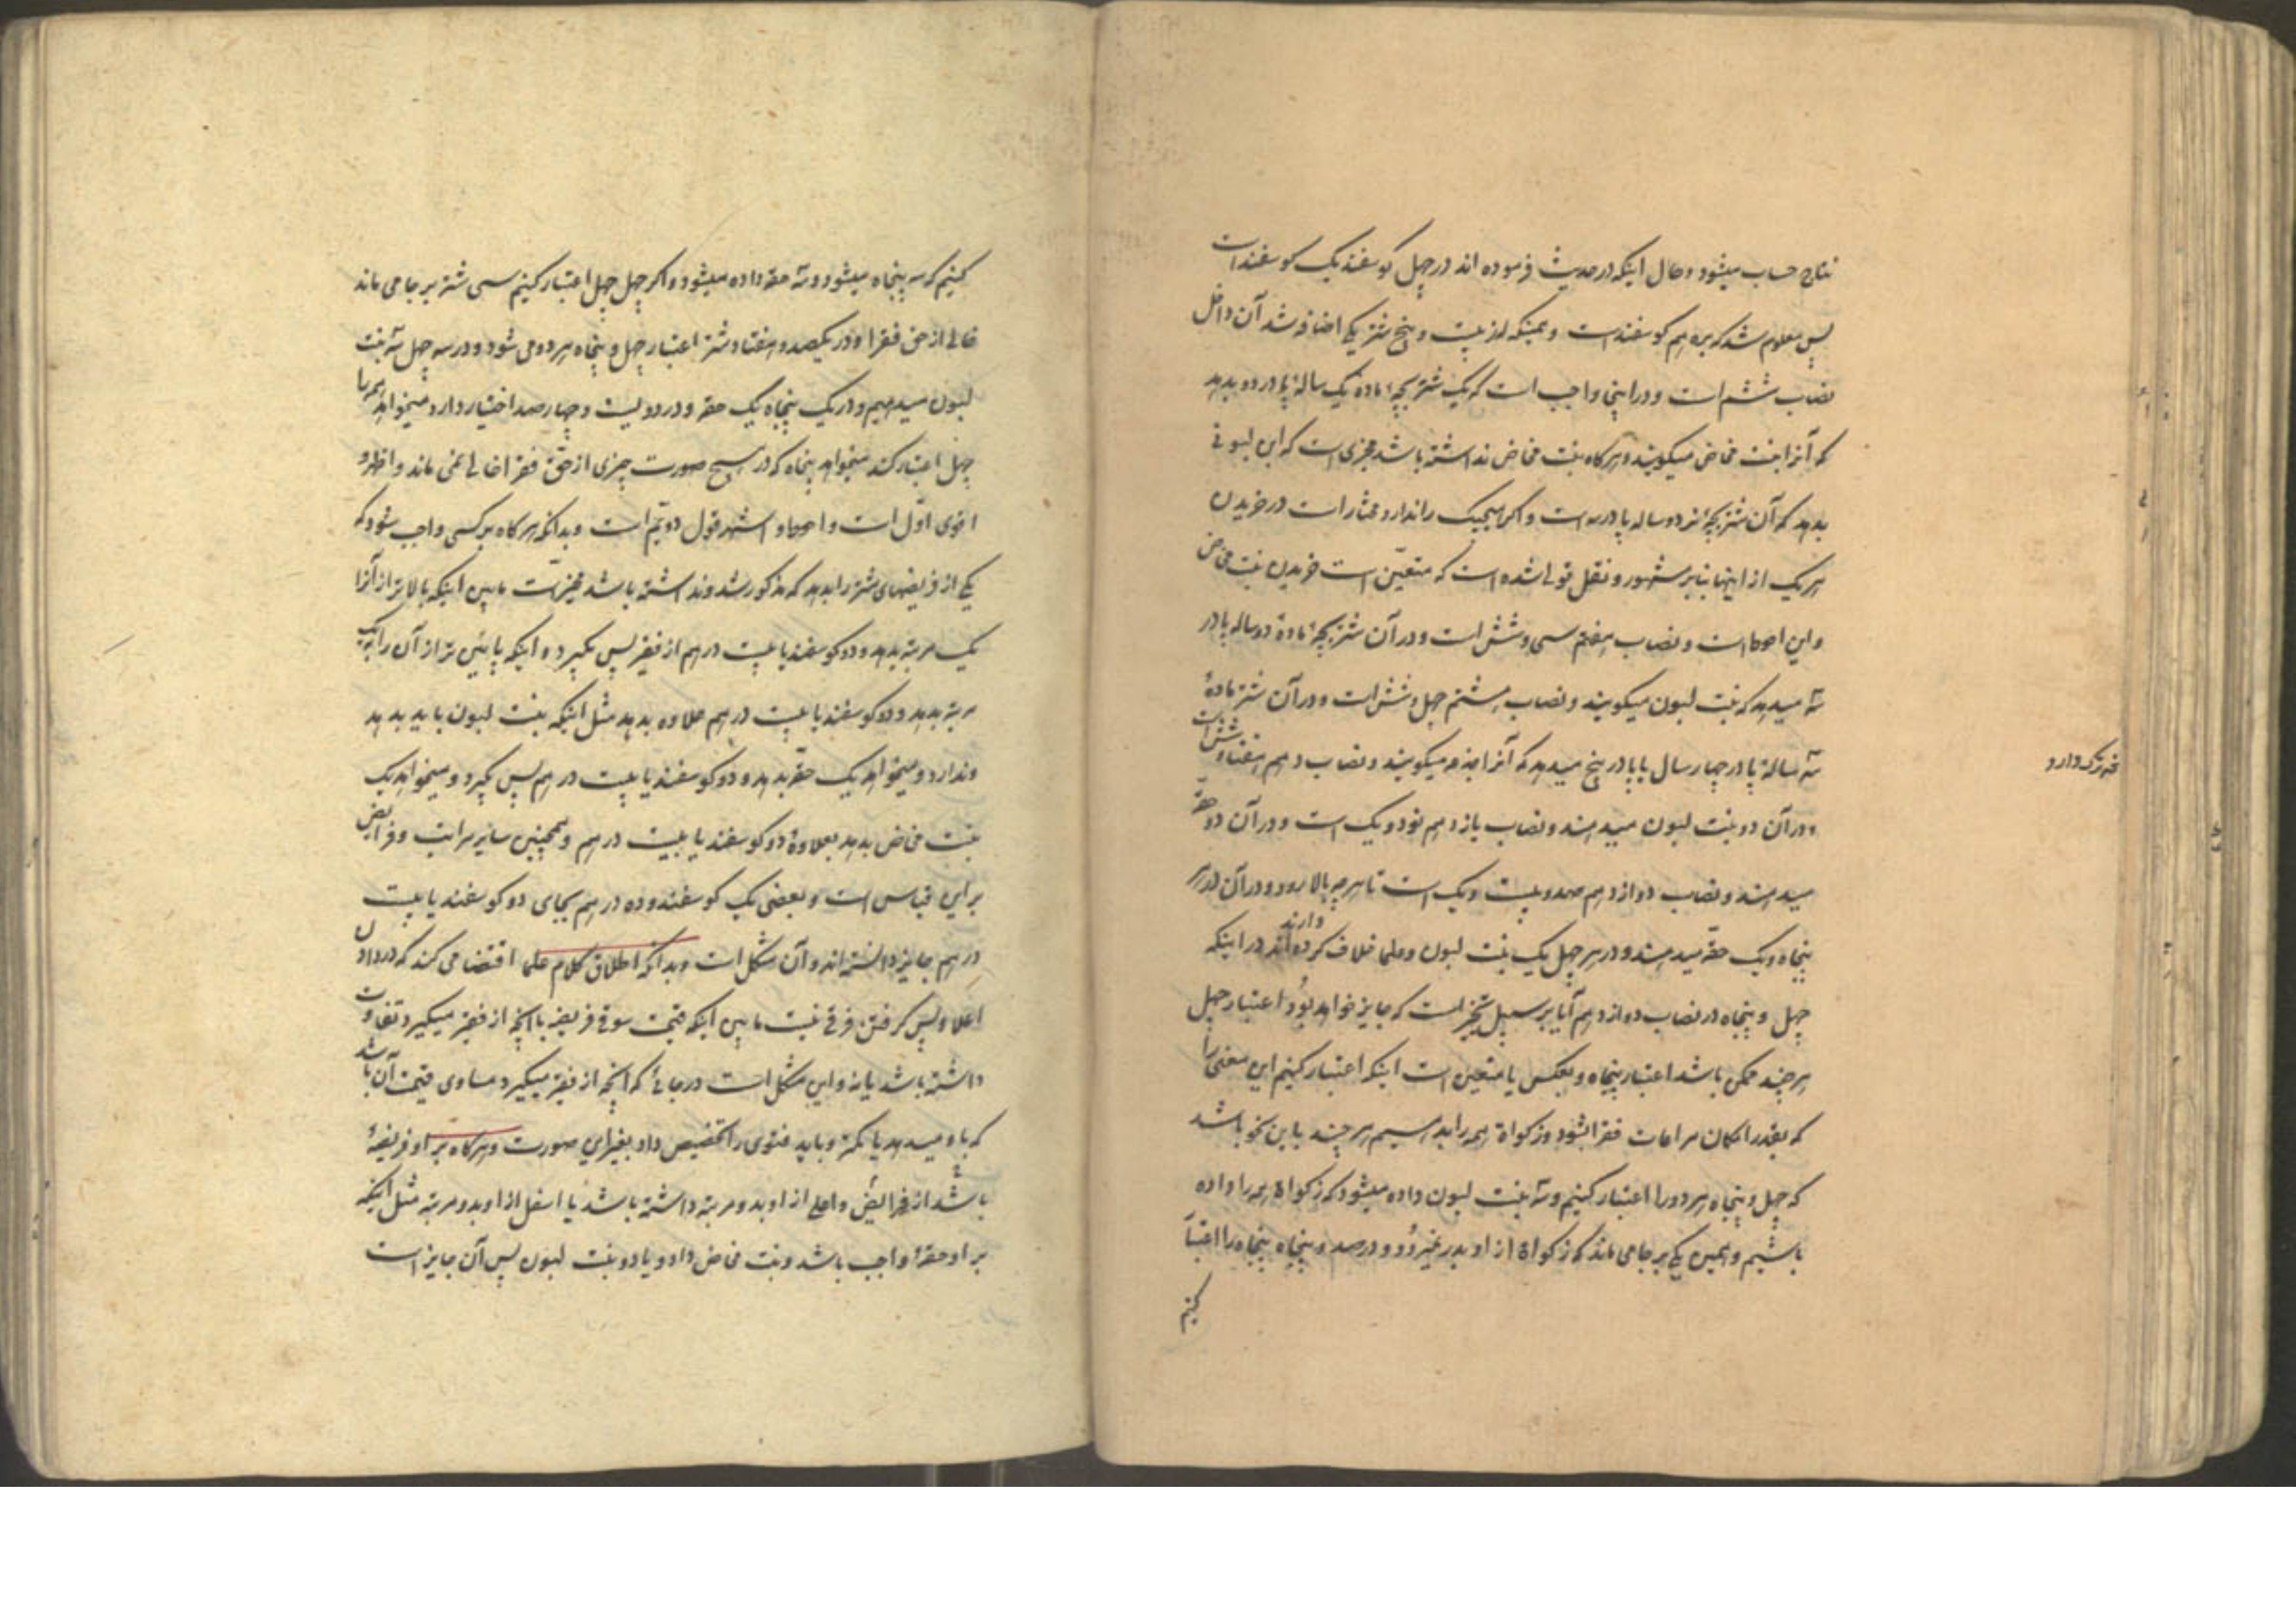 نتاج حساب میشود و حال اینکه در حدیث فرموده اند در چهل کوسفند یک کوسفند است
پس معلوم شد که بره هم کوسفند است و همینکه از بیست و پنج شتر یکی اضافه شد آن داخل
نصاب ششم است و در اینجا واجب است که یک شتر بچهٔ ماده یک ساله پا در دو بدهد
که آنرا بنت مخاض میکویند و هرکاه بنت مخاض نداشته باشد مجزی است که ابن لبونی
بدهد که آن شتر بچهٔ نر دو ساله پا در سه است و اکر هیچیک را ندارد مختار است در خریدن
هر یک از اینها بنابر مشهور و نقل قولی شده است که متعین است خریدن بنت مخاض
و این احوط است و نصاب هفتم سی و شش است و در آن شتر بچهٔ مادهٔ دو ساله پا در
سه میدهد که بنت لبون میکویند و نصاب هشتم چهل و شش است و در آن شتر مادهٔ
سه ساله پا در چهار سال یا پا در پنج میدهد که آنرا جذعه میکویند و نصاب دهم هفتاد و شش است
و در آن دو بنت لبون میدهند و نصاب یازدهم نود و یک است و در آن دو حقه
میدهند و نصاب دوازدهم صد و بیست و یک است تا هرچه بالا رود و در آن در هر
پنجاه و یک حقه میدهند و در هر چهل یک بنت لبون و علما خلاف کرده اند دارند در اینکه
چهل و پنجاه در نصاب دوازدهم آیا بر سبیل تخیر است که جایز خواهد بود اعتبار چهل
هر چند ممکن باشد اعتبار پنجاه و بعکس یا متعین است اینکه اعتبار کنیم این معنی را
که بقدر امکان مراعات فقرا بشود و زکواة همه را بدهیم هر چند باین نحو باشد
که چهل و پنجاه هر دو را اعتبار کنیم و سه بنت لبون داده میشود که زکواة همه را داده
باشیم و همین یکی بر جا می ماند که زکواة از او بدر نمیرود و در صد و پنجاه پنجاه را اعتبار
کنیم
کنیم که سه پنجاه میشود و سه حقه داده میشود و اکر چهل چهل اعتبار کنیم سی شتر بر جا می ماند
خالی از حق فقرا و در یکصد و هفتاد شتر اعتبار چهل و پنجاه هر دو می شود و در سه چهل سه بنت
لبون میدهیم و در یک پنجاه یک حقه و در دویست و چهارصد اختیار دارد میخواهد همه را
چهل اعتبار کند میخواهد پنجاه که در هیچ صورت چیزی از حق فقرا خالی نمی ماند و اظهر و
اقوی اول است و احوط و اشهر قول دویم است و بدانکه هرکاه بر کسی واجب شود که
یکی از فریضهای شتر را بدهد که مذکور شد و نداشته باشد مخیر است مابین اینکه بالاتر از آنرا
یک مرتبه بدهد و دو کوسفند یا بیست درهم از فقیر پس بکیرد و اینکه پایین تر از آن را بیک
مرتبه بدهد و دو کوسفند یا بیست درهم علاوه بدهد مثل اینکه بنت لبون باید بدهد
و ندارد و میخواهد یک حقه بدهد و دو کوسفند یا بیست درهم پس بکیرد و میخواهد یک
بنت مخاض بدهد بعلاوهٔ دو کوسفند یا بیست درهم و همچنین سایر مراتب و فرایض
بر این قیاس است و بعضی یک کوسفند و ده درهم بجای دو کوسفند یا بیست
درهم جایز دانسته اند و آن مشکل است و بدانکه اطلاق کلام علما اقتضا می کند که در دادن
اعلا و پس کرفتن فرقی نیست مابین اینکه قیمت سوقی فریضه با آنچه از فقیر میکیرد تفاوت
داشته باشد یا نه و این مشکل است در جائی که آنچه از فقیر میکیرد مساوی قیمت آن باشد
که باو میدهد یا بمکتر و باید فتوی را تخصیص داد بغیر این صورت و هرکاه بر او فریضهٔ
باشد از فرائض و اعلی از او بدو مرتبه داشته باشد یا اسفل از او بدو مرتبه مثل اینکه
بر او حقهٔ واجب باشد و بنت مخاض دارد یا دو بنت لبون پس آن جایز است